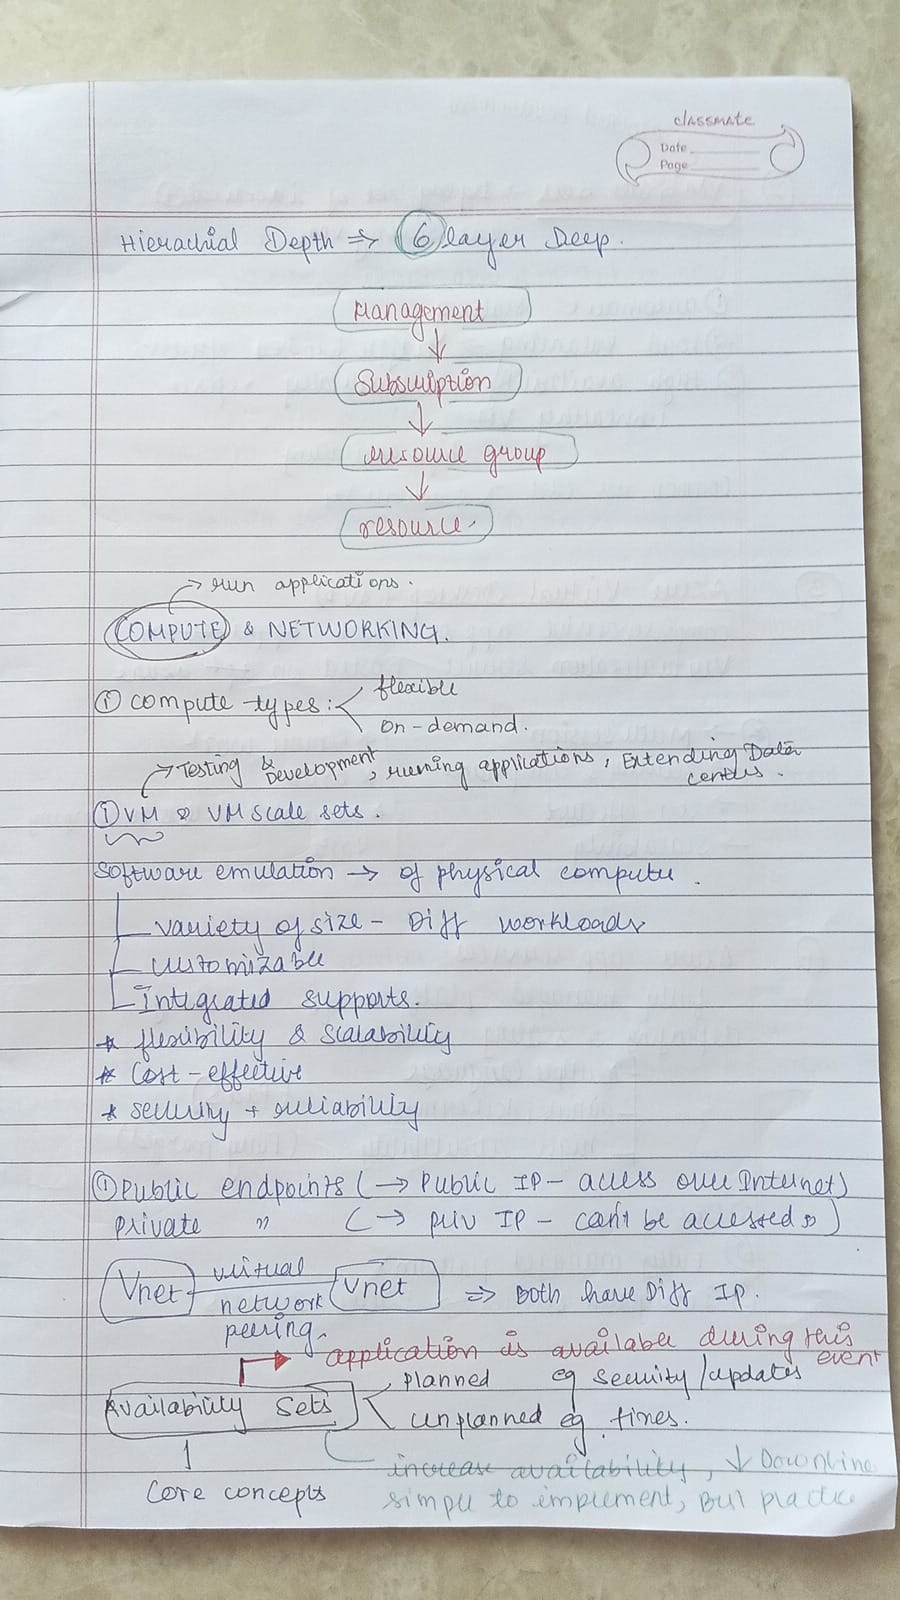 classmate
Date
Page
Hierachial Depth ⇒ 6 layer Deep.
Management
↓
Subscription
↓
resource group
↓
resource.
→ run applications.
COMPUTE & NETWORKING.
① compute types: flexible
on-demand.
→ Testing & Development, running applications, Extending Data
centres.
① VM & VM scale sets.
Software emulation → of physical computer.
Variety of size - Diff workloads
customizable
Integrated supports.
* flexibility & scalability
* Cost-effective
* security + reliability
① Public endpoints (→ Public IP - access over Internet)
private " (→ priv IP - can't be accessed)
Vnet virtual network peering. Vnet ⇒ Both have Diff IP.
application is available during this
event
Availability Sets planned eg security/updates
unplanned eg. fires.
increase availability, ↓ Downtime
Core concepts
simple to implement, But practice